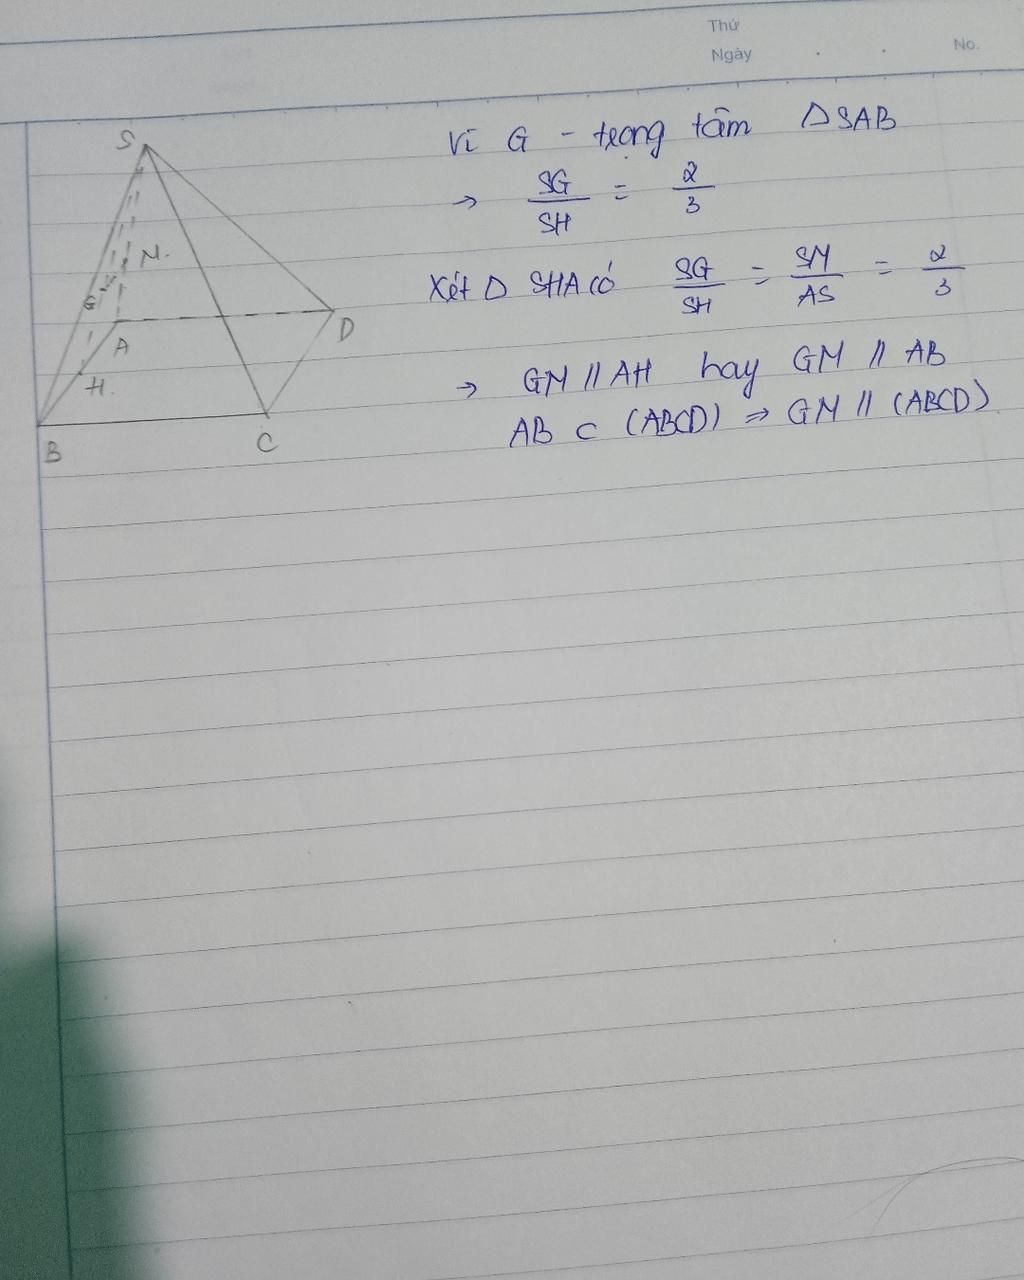 Thứ
Ngày . .
No.
S
M.
G
A
D
H.
B
C
Vì G - trọng tâm ΔSAB
→ SG/SH = 2/3
Xét Δ SHA có SG/SH = SM/AS = 2/3
→ GM // AH hay GM // AB
AB ⊂ (ABCD) ⇒ GM // (ABCD)